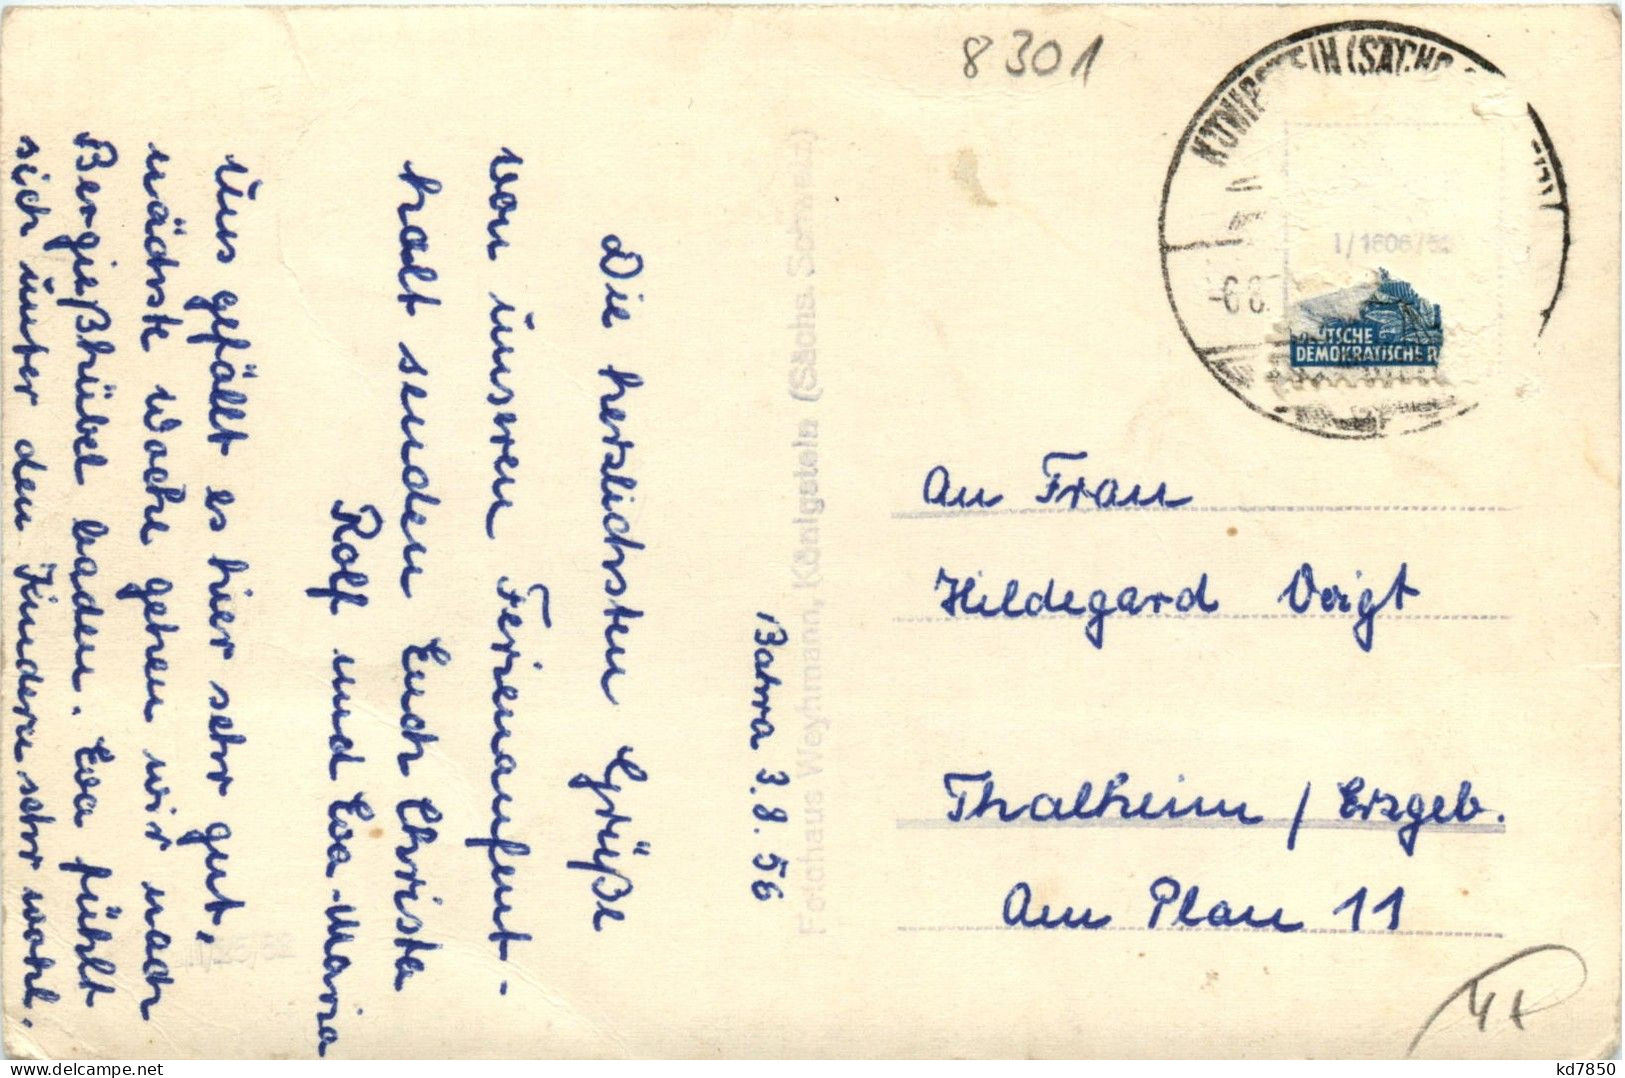 8301
KÖNIGSTEIN (SÄCHS
1/1606/56
DEUTSCHE
DEMOKRATISCHE R
Bahra 3.8.56
Die herzlichsten Grüße
von unseren Ferienaufent-
halt senden Euch Christa
Rolf und Eva-Maria
Uns gefällt es hier sehr gut,
nächste Woche gehen wir nach
Berggießhübel baden. Eva fühlt
sich unter den Kindern sehr wohl.
Fotohaus Weyhmann, Königstein (Sächs. Schweiz)
An Frau
Hildegard Voigt
Thalheim / Erzgeb.
Am Plan 11
kd7850